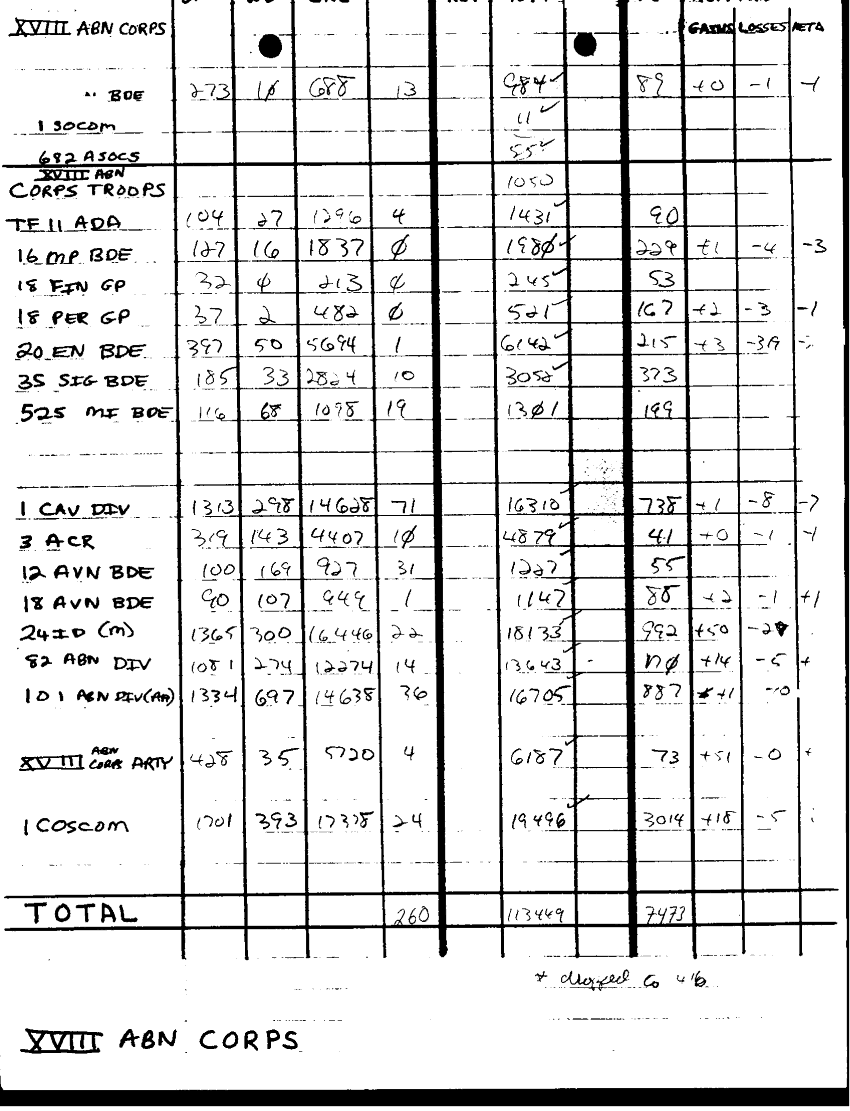 XVIII ABN CORPS GAINS LOSSES NETA
" BDE 273 1∅ 688 13 984✓ 89 +0 -1 -1
1 SOCOM 11✓
682 ASOCS 55✓
XVIII ABN
CORPS TROOPS 1050
TF 11 ADA 104 27 1296 4 1431✓ 90
16 MP BDE 127 16 1837 ∅ 198∅✓ 229 +1 -4 -3
18 FIN GP 32 ∅ 213 ∅ 245✓ 53
18 PER GP 37 2 482 ∅ 521✓ 167 +2 -3 -1
20 EN BDE 397 50 5694 1 6142✓ 215 +3
35 SIG BDE 185 33 2824 10 3052✓ 373
525 MI BDE 116 68 1098 19 13∅1 199
1 CAV DIV 1313 298 14628 71 16310✓ 738 +1 -8 -7
3 ACR 319 143 4407 1∅ 4879✓ 41 +0 -1 -1
12 AVN BDE 100 169 927 31 1227✓ 55
18 AVN BDE 90 107 949 1 1147✓ 88 +2 -1 +1
24 ID (M) 1365 300 16446 22 18133✓ 992 +50
82 ABN DIV 1081 274 12274 14 13643✓ +14 -5 +
101 ABN DIV (AA) 1334 697 14638 36 16705✓ 887 +1 -0
XVIII ABN CORPS ARTY 428 35 5720 4 6187✓ 73 +51 -0 +
1 COSCOM 1701 393 17378 24 19496✓ 3014 +18 -5
TOTAL 260 113449 7473
* dropped to
XVIII ABN CORPS